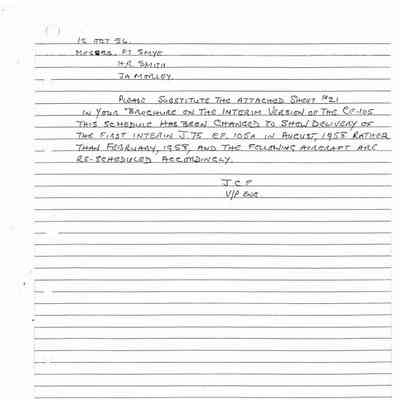 15 OCT 56.
MESSRS. F.T SMYE
H.R. SMITH
J.A MORLEY.
PLEASE SUBSTITUTE THE ATTACHED SHEET #21
IN YOUR "BROCHURE ON THE INTERIM VERSION OF THE CF-105
THIS SCHEDULE HAS BEEN CHANGED TO SHOW DELIVERY OF
THE FIRST INTERIM J.75 CF. 105A IN AUGUST, 1958 RATHER
THAN FEBRUARY, 1958, AND THE FOLLOWING AIRCRAFT ARE
RE-SCHEDULED ACCORDINGLY.
J C F
V/P ENG.